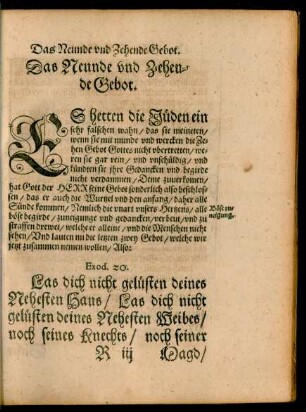 Das Neunde vnd Zehende Gebot.
Das Neunde vnd Zehen-
de Gebot.
ES hetten die Jüden ein
sehr falschen wahn / das sie meineten /
wenn sie mit munde vnd wercken die Ze-
hen Gebot Gottes nicht vbertretten / we-
ren sie gar rein / vnd vnschüldig / vnd
kündten sie jhre Gedancken vnd begirde
nicht verdammen / Deme zuuorkomen /
hat Gott der HERR seine Gebot sonderlich also beschlos-
sen / das er auch die Wurtzel vnd den anfang / daher alle
Sünde kommen / Nemlich die vnart vnsers Hertzens / alle
böse begirde / zuneigunge vnd gedancken / verbeut / vnd zu
straffen drewet / welche er alleine / vnd die Menschen nicht
sehen / Vnd lauten nu die letzten zwey Gebot / welche wir
jetzt zusammen nemen wollen / Also:
Böse zu-
neigung.
Exod. 20.
Las dich nicht gelüsten deines
Nehesten Haus / Las dich nicht
gelüsten deines Nehesten Weibes /
noch seines Knechts / noch seiner
R iij Magd /